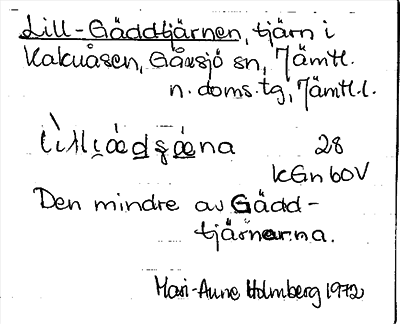 Lill-Gäddtjärnen, tjärn i
Kakuåsen, Gåxsjö sn, Jämtl.
n. doms.tg, Jämtl.l.
28
KGn 60V
Den mindre av Gädd-
tjärnarna.
Mari-Anne Holmberg 1972